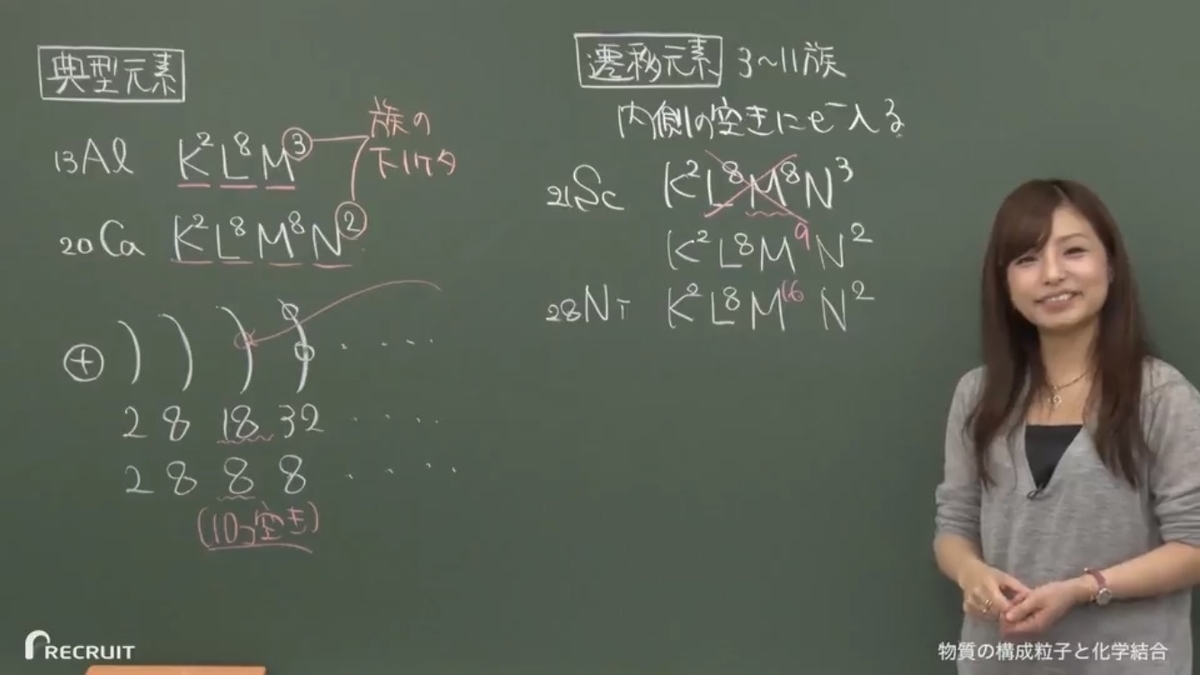 典型元素
13Al K² L⁸ M③
族の
下1ケタ
20Ca K² L⁸ M⁸ N②
+
2 8 18 32 ‥‥
2 8 8 8 ‥‥
(10コ空き)
遷移元素 3~11族
内側の空きにe⁻入る
21Sc K² L⁸ M⁸ N³
K² L⁸ M⁹ N²
28Ni K² L⁸ M¹⁶ N²
RECRUIT
物質の構成粒子と化学結合